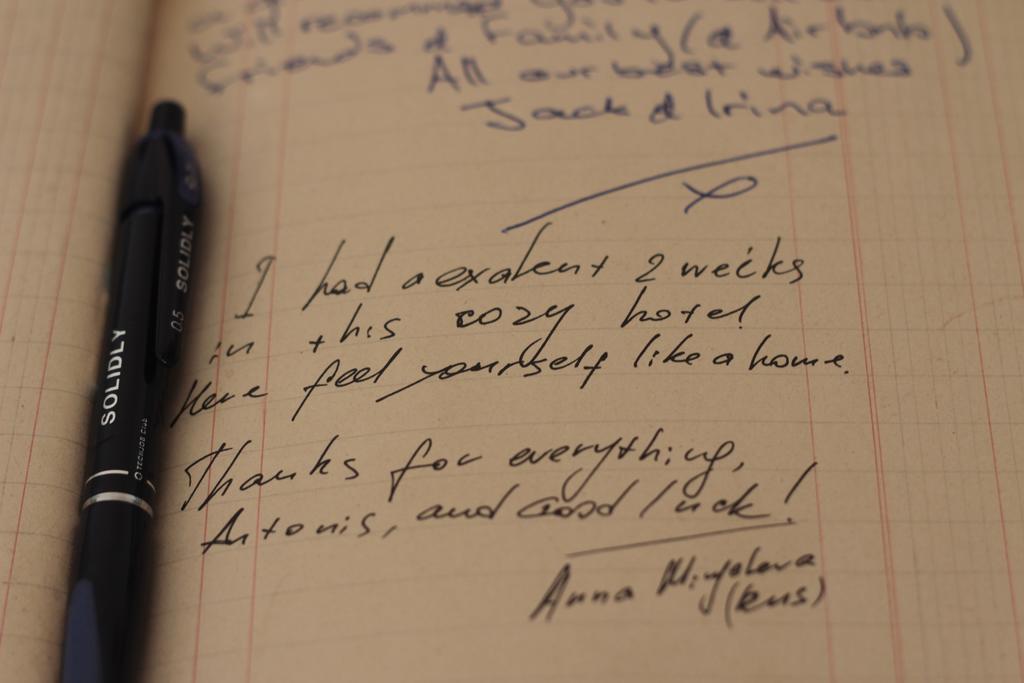 will recommend you to
friends & Family (@ Airbnb)
All our best wishes
Jack & Irina
I had a exalent 2 weeks
in this cozy hotel
Here feel yourself like a home.
Thanks for everything,
Antonis, and Good luck!
Anna
(Rus)
SOLIDLY
0.5 SOLIDLY